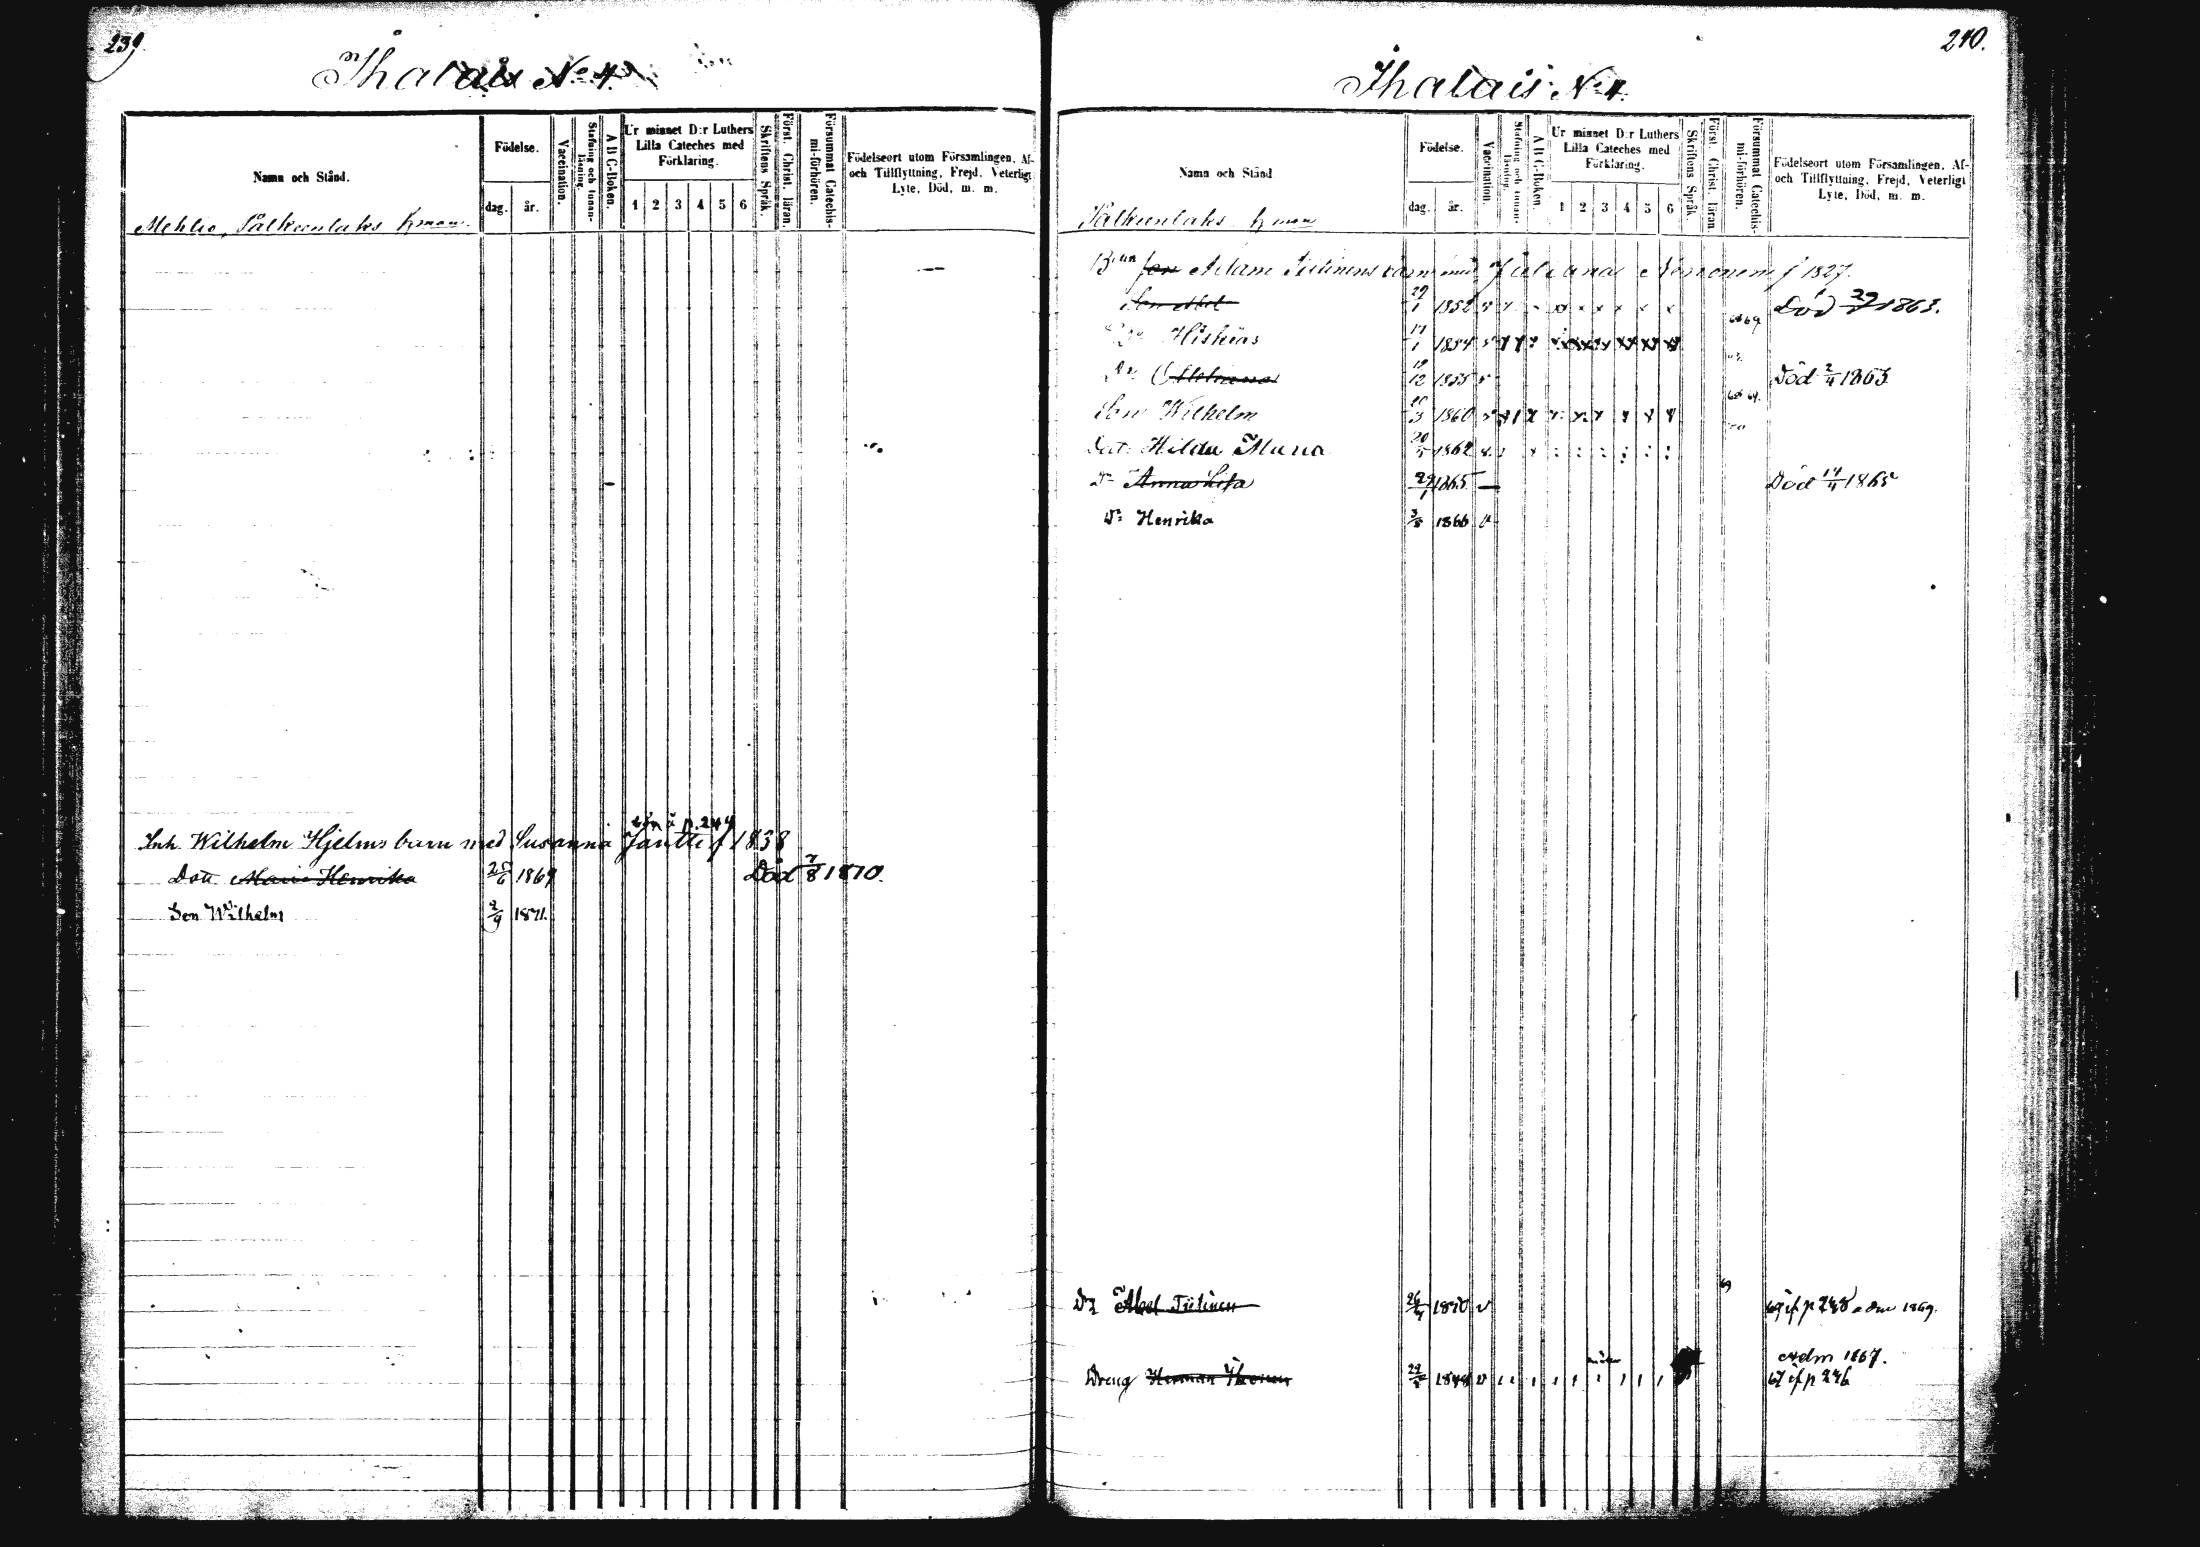 239.
Ihalais No 4.
Namn och Stånd.
Födelse.
dag. år.
Vaccination.
Stafning och Innan-läsning.
A B C-Boken.
Ur minnet D:r Luthers Lilla Cateches med Förklaring.
1 2 3 4 5 6
Skriftens Språk.
Först. Christ. läran.
Försummat Catechis-mi-förhören.
Födelseort utom Församlingen, Af- och Tillflyttning, Frejd, Veterligt Lyte, Död, m. m.
Mehlio, Pålkeenlaks hman.
p. 244
Inh. Wilhelm Hjelms barn med Susanna Jäntti f 1838
Dott. Maria Henrika 25/6 1869 Död 7/8 1870.
Son Wilhelm 2/9 1871.
240.
Ihalais No 4.
Namn och Stånd
Födelse.
dag. år.
Vaccination.
Stafning och Innan-läsning.
A B C-Boken.
Ur minnet D:r Luthers Lilla Cateches med Förklaring.
1 2 3 4 5 6
Skriftens Språk
Först. Christ. läran.
Försummat Catechis-mi-förhören.
Födelseort utom Församlingen, Af- och Tillflyttning, Frejd, Veterligt Lyte, Död, m. m.
Pålkeenlaks hman
Adam Tiitinens barn med Juliana f 1827.
Son Abel 29/1 1852 Död 1863.
Hiskias 1854
Do 12 1855 Död 2/4 1863
Son Wilhelm 1860
Dott. Hilda Maria 1862
Do Anna Lisa 29/1 1865 — Död 14/4 1865
Do Henrika 3/8 1866 v
Abel Tiitinen 69 if p 248 adm 1869.
Adm 1867.
Dreng Herman Ikonen 1848 v 67 if p 246